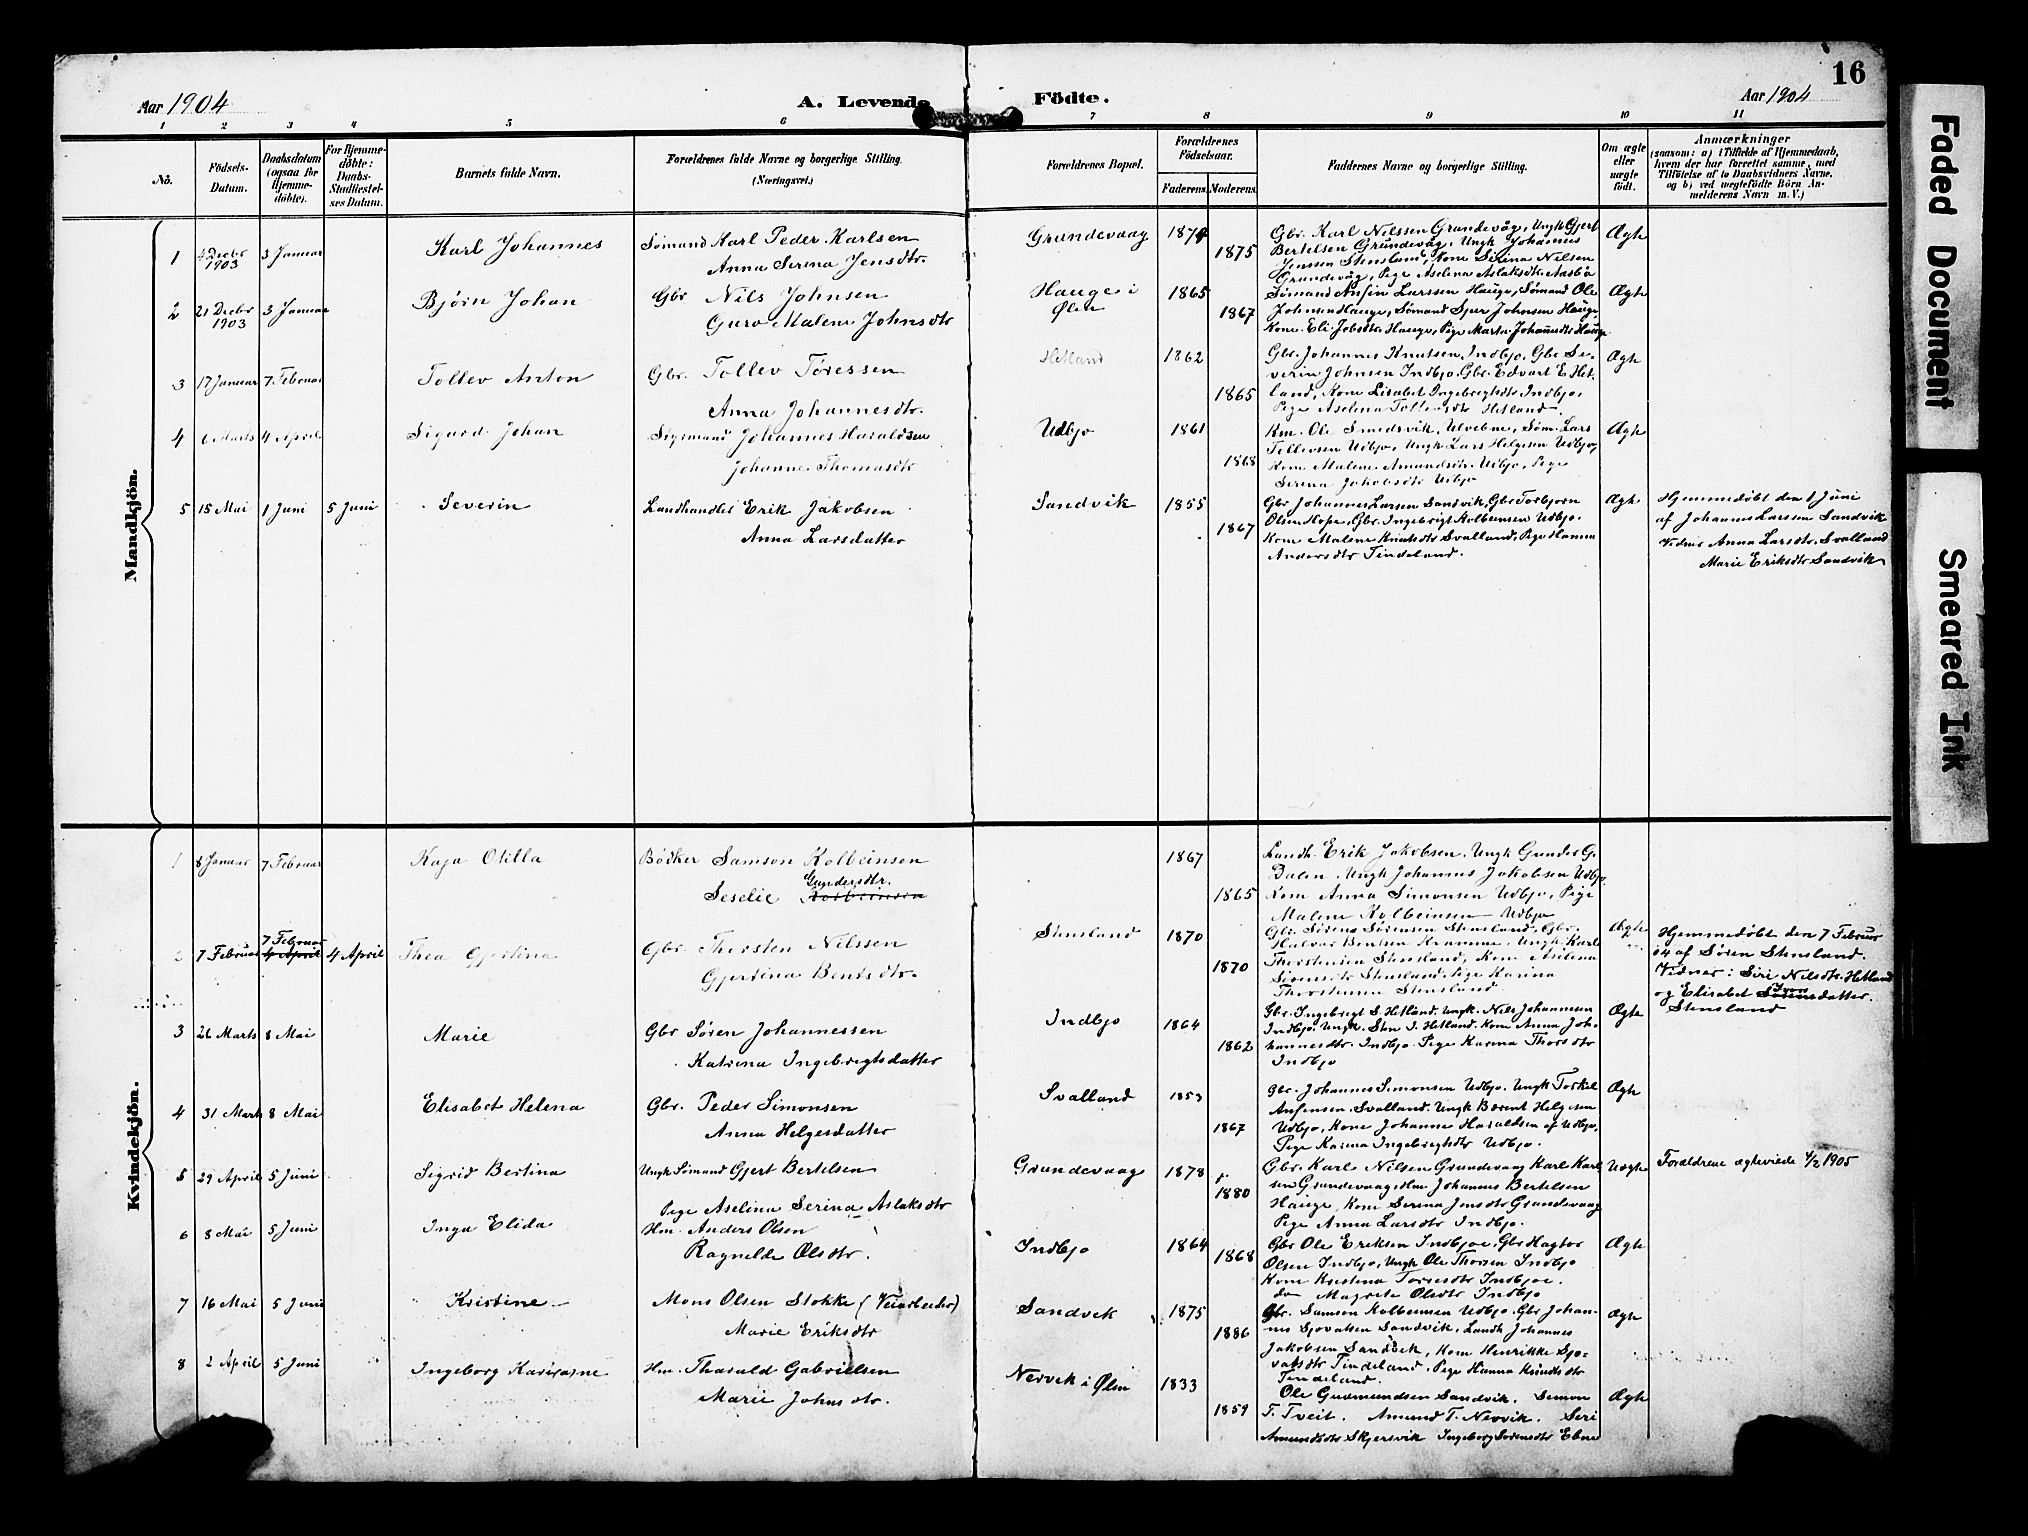 16
Aar 1904
A. Levende Födte.
Aar 1904
1 2 3 4 5 6 7 8 9 10 11
No.
Födsels-Datum.
Daabsdatum (ogsaa for Hjemme-döbte).
For Hjemme-döbte: Daabs-Stadfæstel-ses Datum.
Barnets fulde Navn.
Forældrenes fulde Navne og borgerlige Stilling.
(Næringsvei.)
Forældrenes Bopæl.
Forældrenes Födselsaar.
Faderens. Moderens.
Faddernes Navne og borgerlige Stilling.
Om ægte eller uægte födt.
Anmærkninger
(saasom: a) i Tilfælde af Hjemmedaab,
hvem der har forrettet samme, med
Tilföielse af to Daabsvidners Navne,
og b) ved uægtefödte Börn An-
melderens Navn m. V.)
Mandkjön.
1 4 Decbr 1903 3 Januar Karl Johannes Sømand Karl Peder Karlsen Grundevaag 1874 Ægte
Anna Serina Jensdtr. 1875
Gbr. Karl Nilssen Grundevåg, Ungk Gjert
Bertelsen Grundevåg, Ungk Johannes
Jenssen Stensland, Kone Serina Nilsen
Grundevåg, Pige Aselina Aslaksdtr Aasbö
2 21 Decbr 1903 3 Januar Bjørn Johan Gbr Nils Johnsen Hauge i Ølen 1865 Ægte
Guro Malene Johnsdtr 1867
Sømand Ansin Larssen Hauge, Sømand Ole
Johnsen Hauge, Sømand Sjur Johnsen Hauge,
Kone Eli Jobsdtr Hauge, Pige Marta Johannsdtr Hauge
3 17 Januar 7 Februar Tollev Anton Gbr. Tollev Tøressen Hetland 1862 Ægte
Anna Johannesdtr. 1865
Gbr. Johannes Knutsen Indbjo, Gbr Se-
verin Johnsen Indbjo, Gbr. Edvart E Het-
land, Kone Lisabet Ingebregtsdtr Indbjo,
Pige Aselina Tollevsdtr Hetland.
4 6 Marts 4 April Sigurd Johan Styrmand Johannes Haraldsen Udbjo 1861 Ægte
Johanne Thomasdtr 1868
Km. Ole Smedsvik, Ulvebne, Søm. Lars
Tollevsen Udbjo, Ungk Lars Helgesen Udbjo,
Kone Malene Amundsdtr. Udbjo, Pige
Serina Jakobsdtr Udbjo
5 15 Mai 1 Juni 5 Juni Severin Landhandler Erik Jakobsen Sandvik 1855 Ægte
Anna Larsdatter 1867
Gbr Johannes Larsen Sandvik, Gbr Torbjørn
Olsen Hope, Gbr. Ingebrigt Kolbeinsen Udbjo.
Kone Malene Knutsdtr Svalland, Pige Hanna
Andersdtr Tindeland.
Hjemmedøbt den 1 Juni
af Johannes Larssen Sandvik
Vidner Anna Larsdtr. Svalland
Marie Eriksdtr Sandvik
Kvindekjön.
1 8 Januar 7 Februar Kaja Otilla Bødker Samson Kolbeinsen 1867
Seselie Kolbeinsen Gundersdtr. 1865
Landh. Erik Jakobsen. Ungk Gunder G.
Dalen. Ungk Johannes Jakobsen Udbjo.
Kone Anna Simonsen Udbjo, Pige
Malene Kolbeinsen Udbjo
2 7 Februar 4 April 7 Februar 4 April Thea Gjertina Gbr. Thorsten Nilssen Stensland 1870 Ægte
Gjertina Bentsdtr. 1870
Gbr. Sørens Sørensen Stensland, Gbr.
Halvor Bentsen Hramme. Ungk Karl
Thorstensen Stensland, Kone Aselina
Sørensdtr Stensland, Pige Karina
Thorstensen Stensland.
Hjemmedøbt den 7 Februar
04 af Søren Stensland.
Vidner: Siri Nilsdtr. Hetland
og Elisabet Sørensdatter.
Stensland
3 26 Marts 8 Mai Marie Gbr Søren Johannessen Indbjo 1864 Ægte
Katrina Ingebregtsdatter 1862
Gbr. Ingebregt S. Hetland. Ungk. Nils Johannesen
Indbjo. Ungk. Sten I. Hetland. Kone Anna Joh-
hannesdtr. Indbjo. Pige Karina Thorsdtr
Indbjo
4 31 Marts 8 Mai Elisabet Helena Gbr. Peder Simonsen Svalland 1853 Ægte
Anna Helgesdatter 1867
Gbr. Johannes Simonsen Udbjo. Ungk Torkel
Ansensen. Svalland. Ungk Bærent Helgesen
Udbjo, Kone Johanne Haraldsen af Udbjo,
Pige Karina Ingebregtsdtr Udbjo.
5 29 April 5 Juni Sigrid Bertina Ungk Sömand Gjert Bertelsen Grundevaag 1878 Uægte
Pige Aselina Serina Aslaksdtr 1880
Gbr. Karl Nilsen Grundevaag Karl Karl-
sen Grundevaag, Hm Johannes Bertelsen
Hauge, Kone Serina Jensdtr Grundevaag
Pige Anna Larsdtr Indbjo.
Forældrene ægteviede 4/2 1905
6 8 Mai 5 Juni Inga Elida Hm. Anders Olsen Indbjo 1864 Ægte
Ragnilde Olsdtr. 1868
Gbr Ole Eriksen Indbjoe, Gbr Hagtor
Olsen Indbjo, Ungk Ole Thorsen Indbjo
Kone Kristina Torresdtr Indbjoe.
do Magrete Olsdtr Indbjo
7 16 Mai 5 Juni Kristine Mons Olsen Stokke (Veiarbeider) Sandvek 1875 Ægte
Marie Eriksdtr 1886
Gbr. Samson Kolbeinsen Udbjo, Gbr Johan-
nes Sjovatsen Sandvik, Landh Johannes
Jakobsen Sandvik, Kone Henrikke Sjo-
vatsdtr Tindeland, Pige Hanna Knutsdtr
Tindeland.
8 2 April 5 Juni Ingeborg Karine Hm. Tharald Gabrielsen Nervik i Ølen 1833 Ægte
Marie Johnsdtr. 1859
Ole Gudmundsen Sandvik. Simon
T. Tveit. Amund T. Nervik. Seri
Amundsdtr Skjersvik Ingeborg Sørensdtr Ebne
Faded Document
Smeared Ink